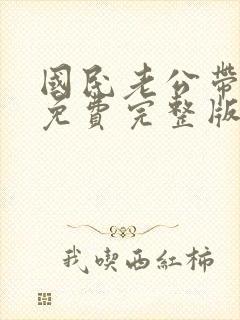 國民老公帶
免費完整版
我喫西紅柿